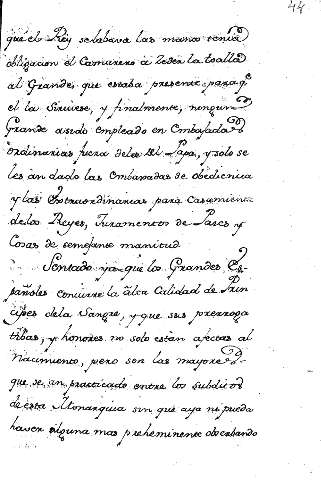 44
que el Rey selabava las manos tenia
obligacion el Camarero â Zeder la toalla
al Grande, que estaba presente para q.e
el la Sirviese, y finalmente, ningun
Grande asido empleado en Embajadas
ordinarias fuera delas del Papa, y solo se
les án dado las embaxadas de obediencia
y las extraordinarias para Casamientos
de los Reyes, Juramentos de Pases y
Cosas de semejante
Sentado ya que los Grandes Es-
pañoles concurre la alta Calidad de Prin
cipes dela Sangre, y que sus prerroga
tibas, y honores no solo están afectas al
Nacimiento, pero son las mayores
que se án practicado entre los subditos
de esta Monarquia sin que aya ni pueda
haver alguna mas preheminente obserbando